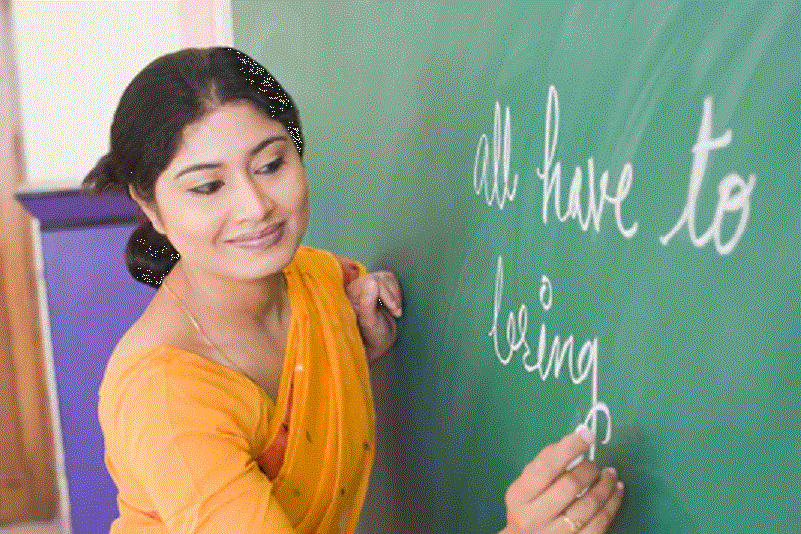 all have to
bring